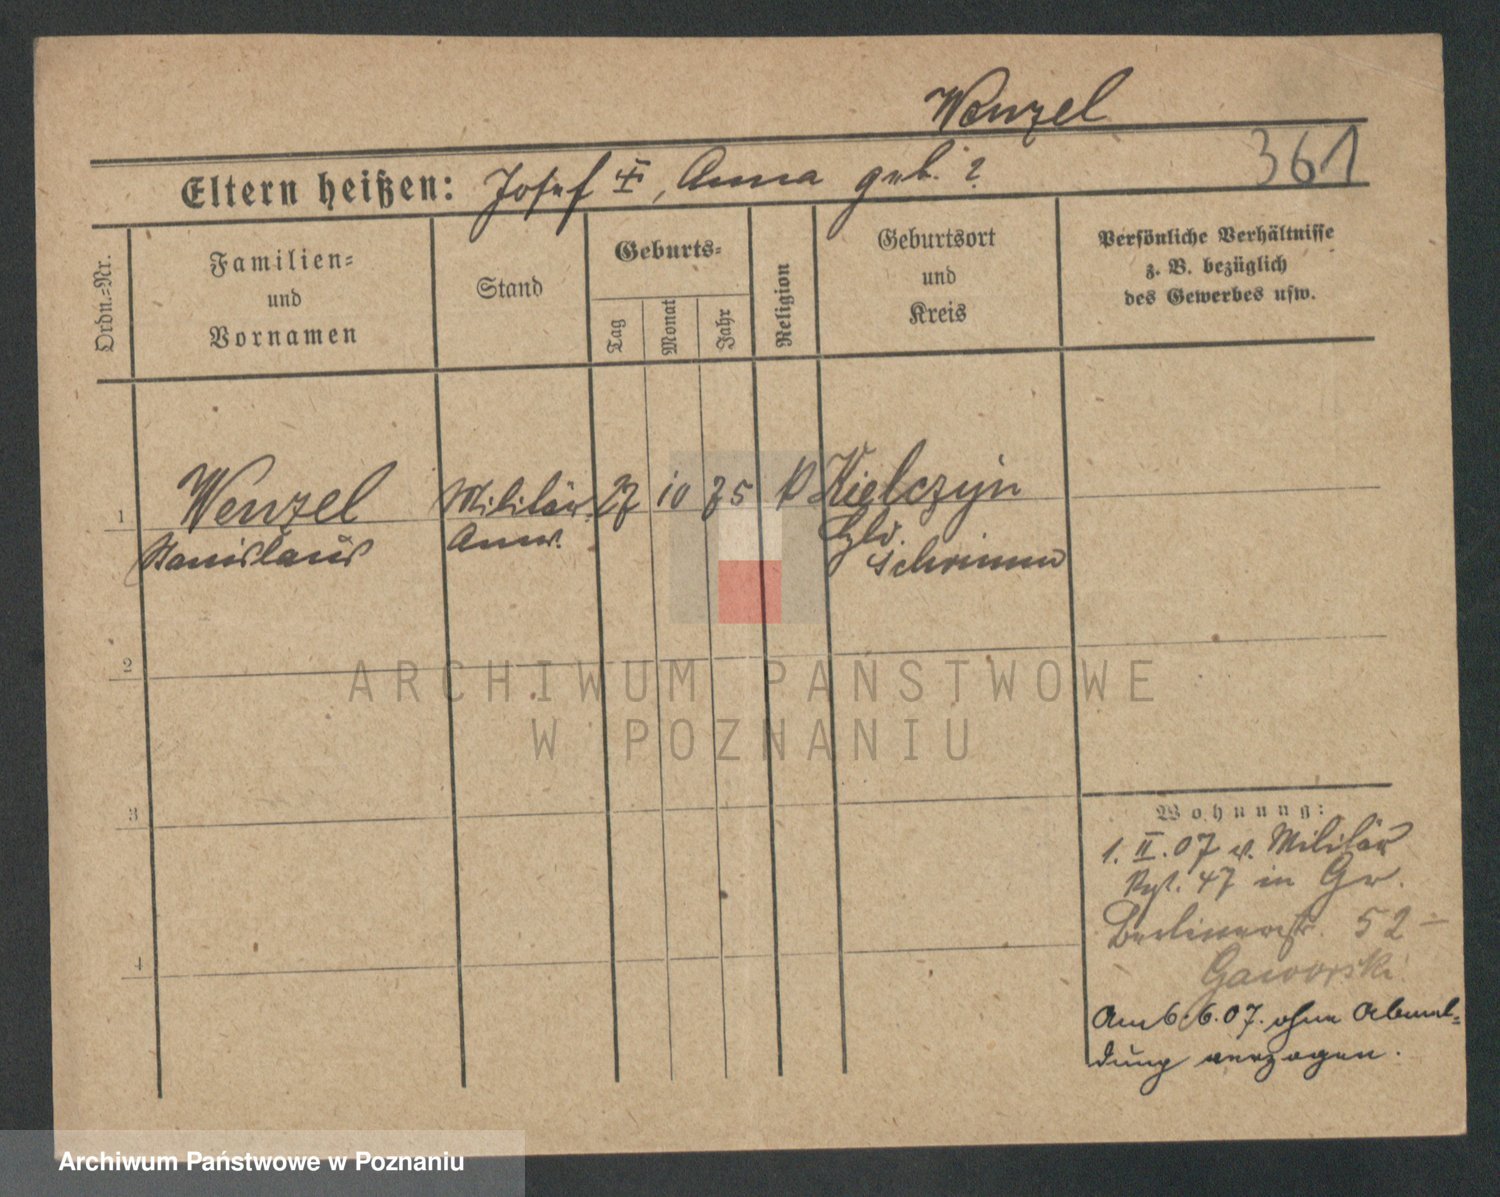 Wenzel
361
Eltern heißen: Josef ☩, Anna geb. ?
Ordn.-Nr.
Familien-
und
Vornamen
Stand
Geburts-
Tag
Monat
Jahr
Religion
Geburtsort
und
Kreis
Persönliche Verhältnisse
z. B. bezüglich
des Gewerbes usw.
1
Wenzel
Stanislaus
Militär
Anw.
27
10
75
k
Kielczyn
Schrimm
2
3
4
Wohnung:
1. II. 07 v. Militär
Rgt. 47 in Gr.
Berlinerstr. 52 -
Gaworski
Am 6.6.07. ohne Abmel-
dung verzogen.
ARCHIWUM PAŃSTWOWE
W POZNANIU
Archiwum Państwowe w Poznaniu